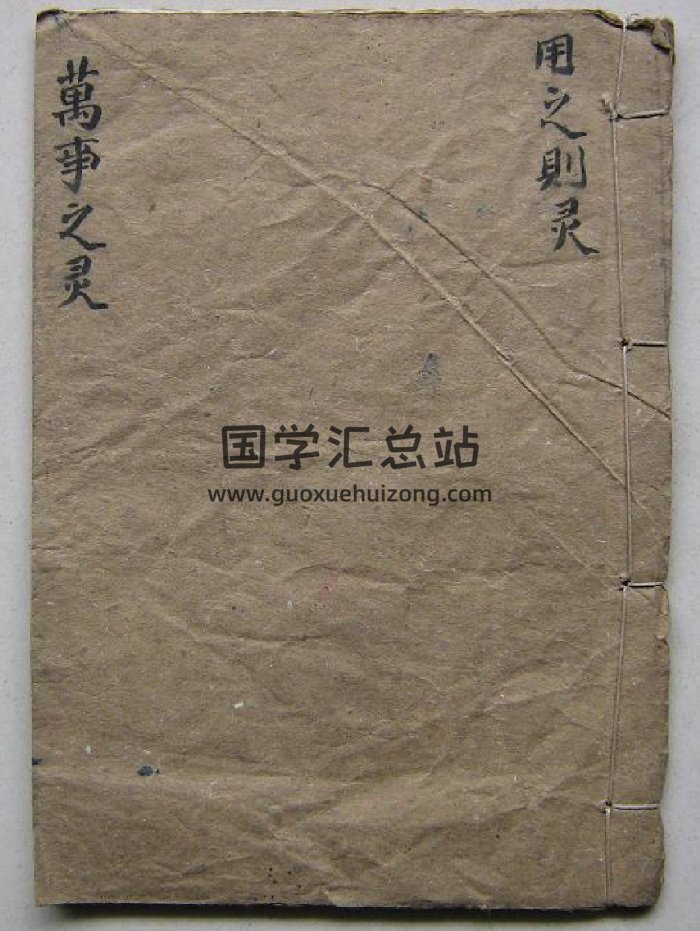 用之則灵
萬事之灵
国学汇总站
www.guoxuehuizong.com